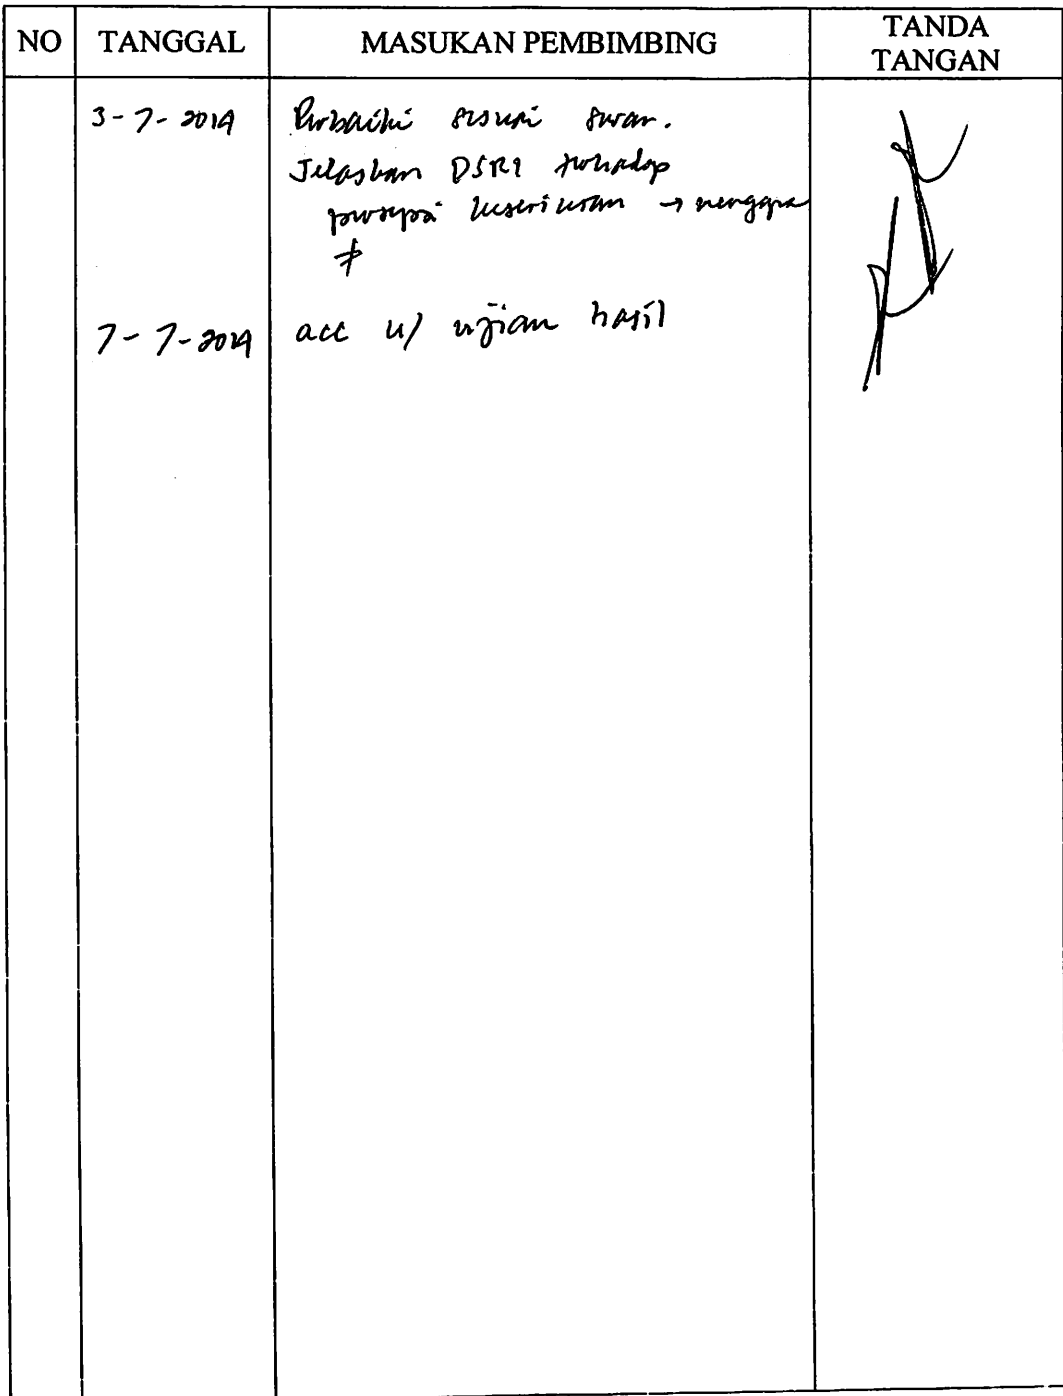 NO TANGGAL MASUKAN PEMBIMBING TANDA
TANGAN
3-7-2014 Perbaiki sesuai saran.
Jelaskan DSRI terhadap
persepsi → mengapa
≠
7-7-2014 acc u/ ujian hasil